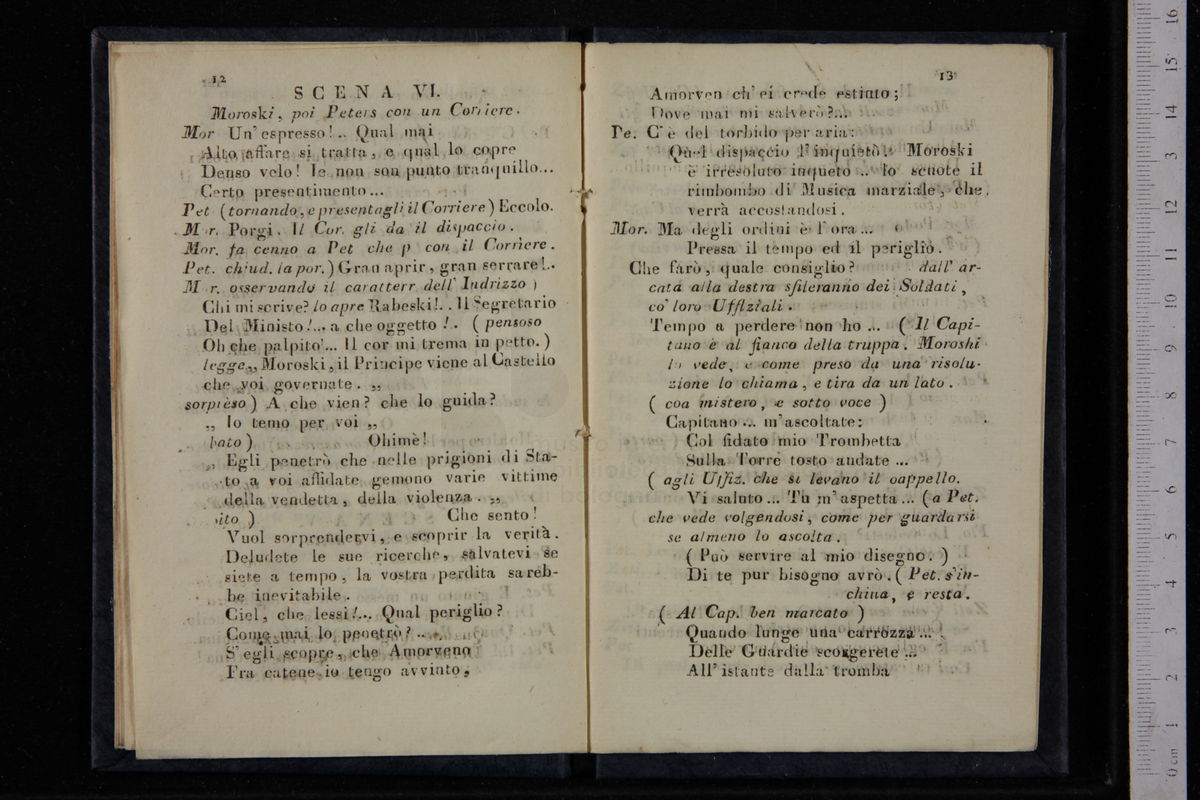 12
SCENA VI.
Moroski, poi Peters con un Corriere.
Mor Un' espresso!.. Qual mai
Alto affare si tratta, e qual lo copre
Denso velo! Io non son punto tranquillo...
Certo presentimento...
Pet (tornando, e presentagli il Corriere) Eccolo.
M r. Porgi. Il Cor. gli da il dispaccio.
Mor. fa cenno a Pet che p con il Corriere.
Pet. chiud. la por.) Gran aprir, gran serrare!..
M r. osservando il caratterr dell' Indrizzo)
Chi mi scrive? lo apre Rabeski!.. Il Segretario
Del Ministo!... a che oggetto!. (pensoso
Oh che palpito!... Il cor mi trema in petto.)
legge,, Moroski, il Principe viene al Castello
che voi governate. ,,
sorpièso) A che vien? che lo guida?
,, Io temo per voi ,,
bato) Ohimè!
,, Egli penetrò che nelle prigioni di Sta-
to a voi affidate gemono varie vittime
della vendetta, della violenza. ,,
ito) Che sento!
Vuol sorprendervi, e scoprir la verità.
Deludete le sue ricerche, salvatevi se
siete a tempo, la vostra perdita sareb-
be inevitabile.
Ciel, che lessi!... Qual periglio?
Come mai lo penetrò?...
S' egli scopre, che Amorveno
Fra catene io tengo avvinto,
13
Amorven ch' ei crede estinto;
Dove mai mi salverò?...
Pe. C' è del torbido per aria:
Quel dispaccio l' inquietò.. Moroski
è irresoluto inqueto ... Io scuote il
rimbombo di Musica marziale, che
verrà accostandosi.
Mor. Ma degli ordini è l' ora...
Pressa il tempo ed il periglio.
Che farò, quale consiglio? dall' ar-
cata alla destra sfileranno dei Soldati,
co' loro Uffiziali.
Tempo a perdere non ho ... (Il Capi-
tano è al fianco della truppa. Moroshi
lo vede, e come preso da una risolu-
zione lo chiama, e tira da un lato.
( coa mistero, e sotto voce )
Capitano ... m' ascoltate:
Col fidato mio Trombetta
Sulla Torre tosto andate ...
( agli Uffiz. che si levano il cappello.
Vi saluto... Tu m' aspetta... (a Pet.
che vede volgendosi, come per guardarsi
se almeno lo ascolta.
( Può servire al mio disegno. )
Di te pur bisogno avrò. ( Pet. s' in-
china, e resta.
( Al Cap. ben marcato )
Quando lunge una carrozza ...
Delle Guardie scorgerete ...
All' istante dalla tromba